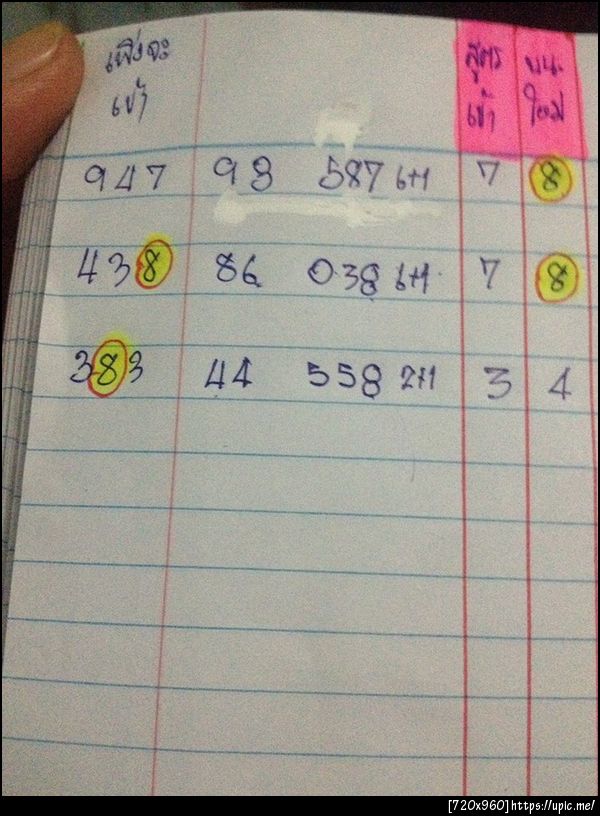 เพิ่งจะ สูตร บน.
เข้า เข้า ใหม่
947 98 587 6+1 7 8
438 86 038 6+1. 7 8
383 44 558 2+1 3 4
[720x960]https://upic.me/